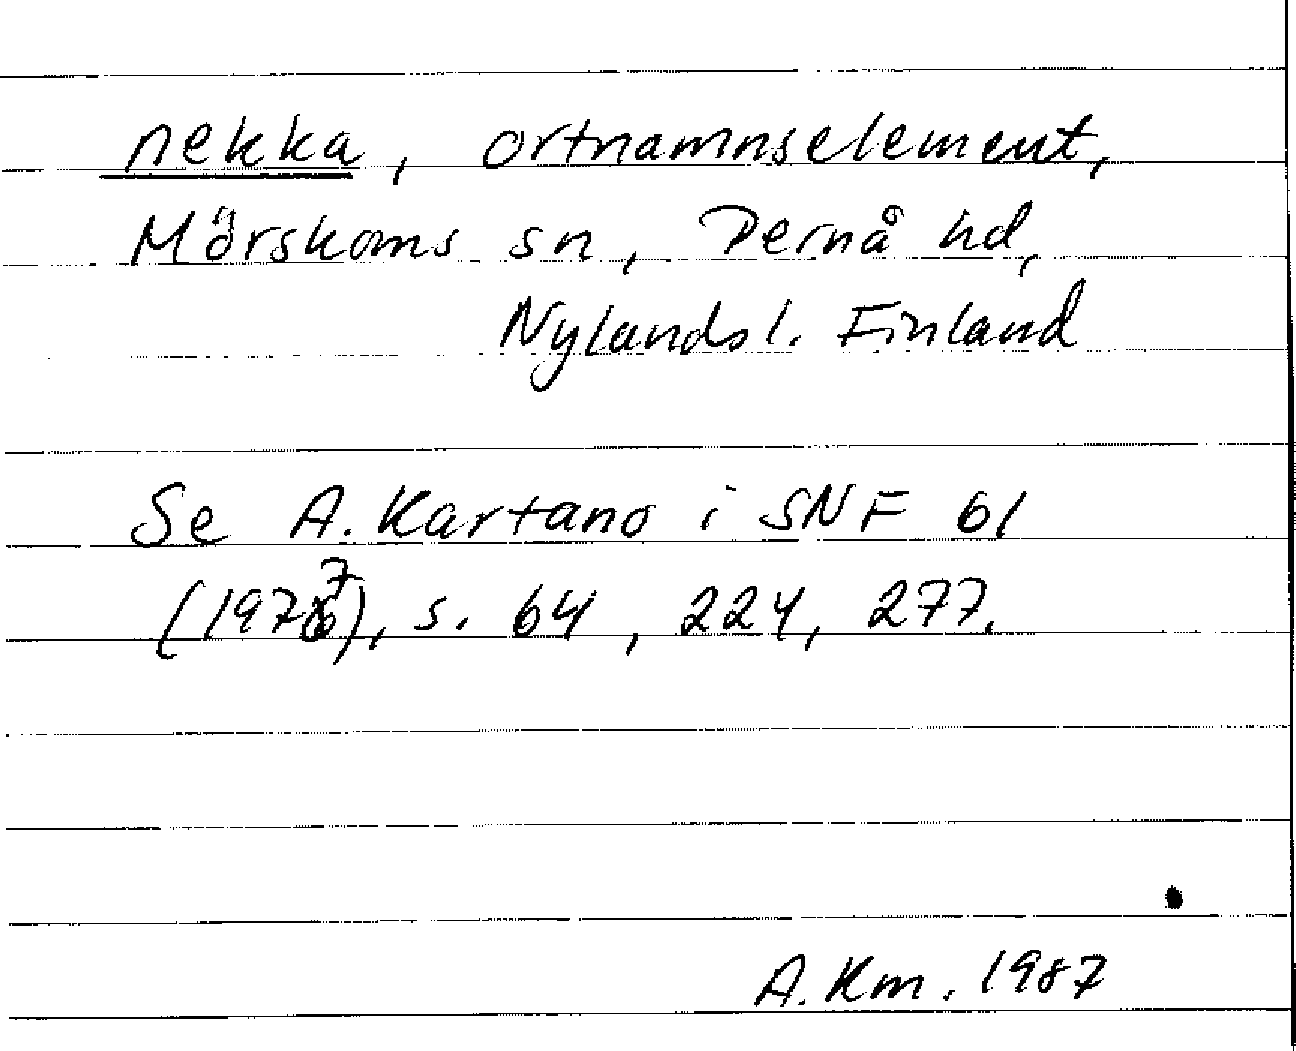 nekka, ortnamnselement,
Mörskoms sn, Pernå hd,
Nylands l. Finland
Se A. Kartano i SNF 61
(1977), s. 64, 224, 277.
A. Km. 1987